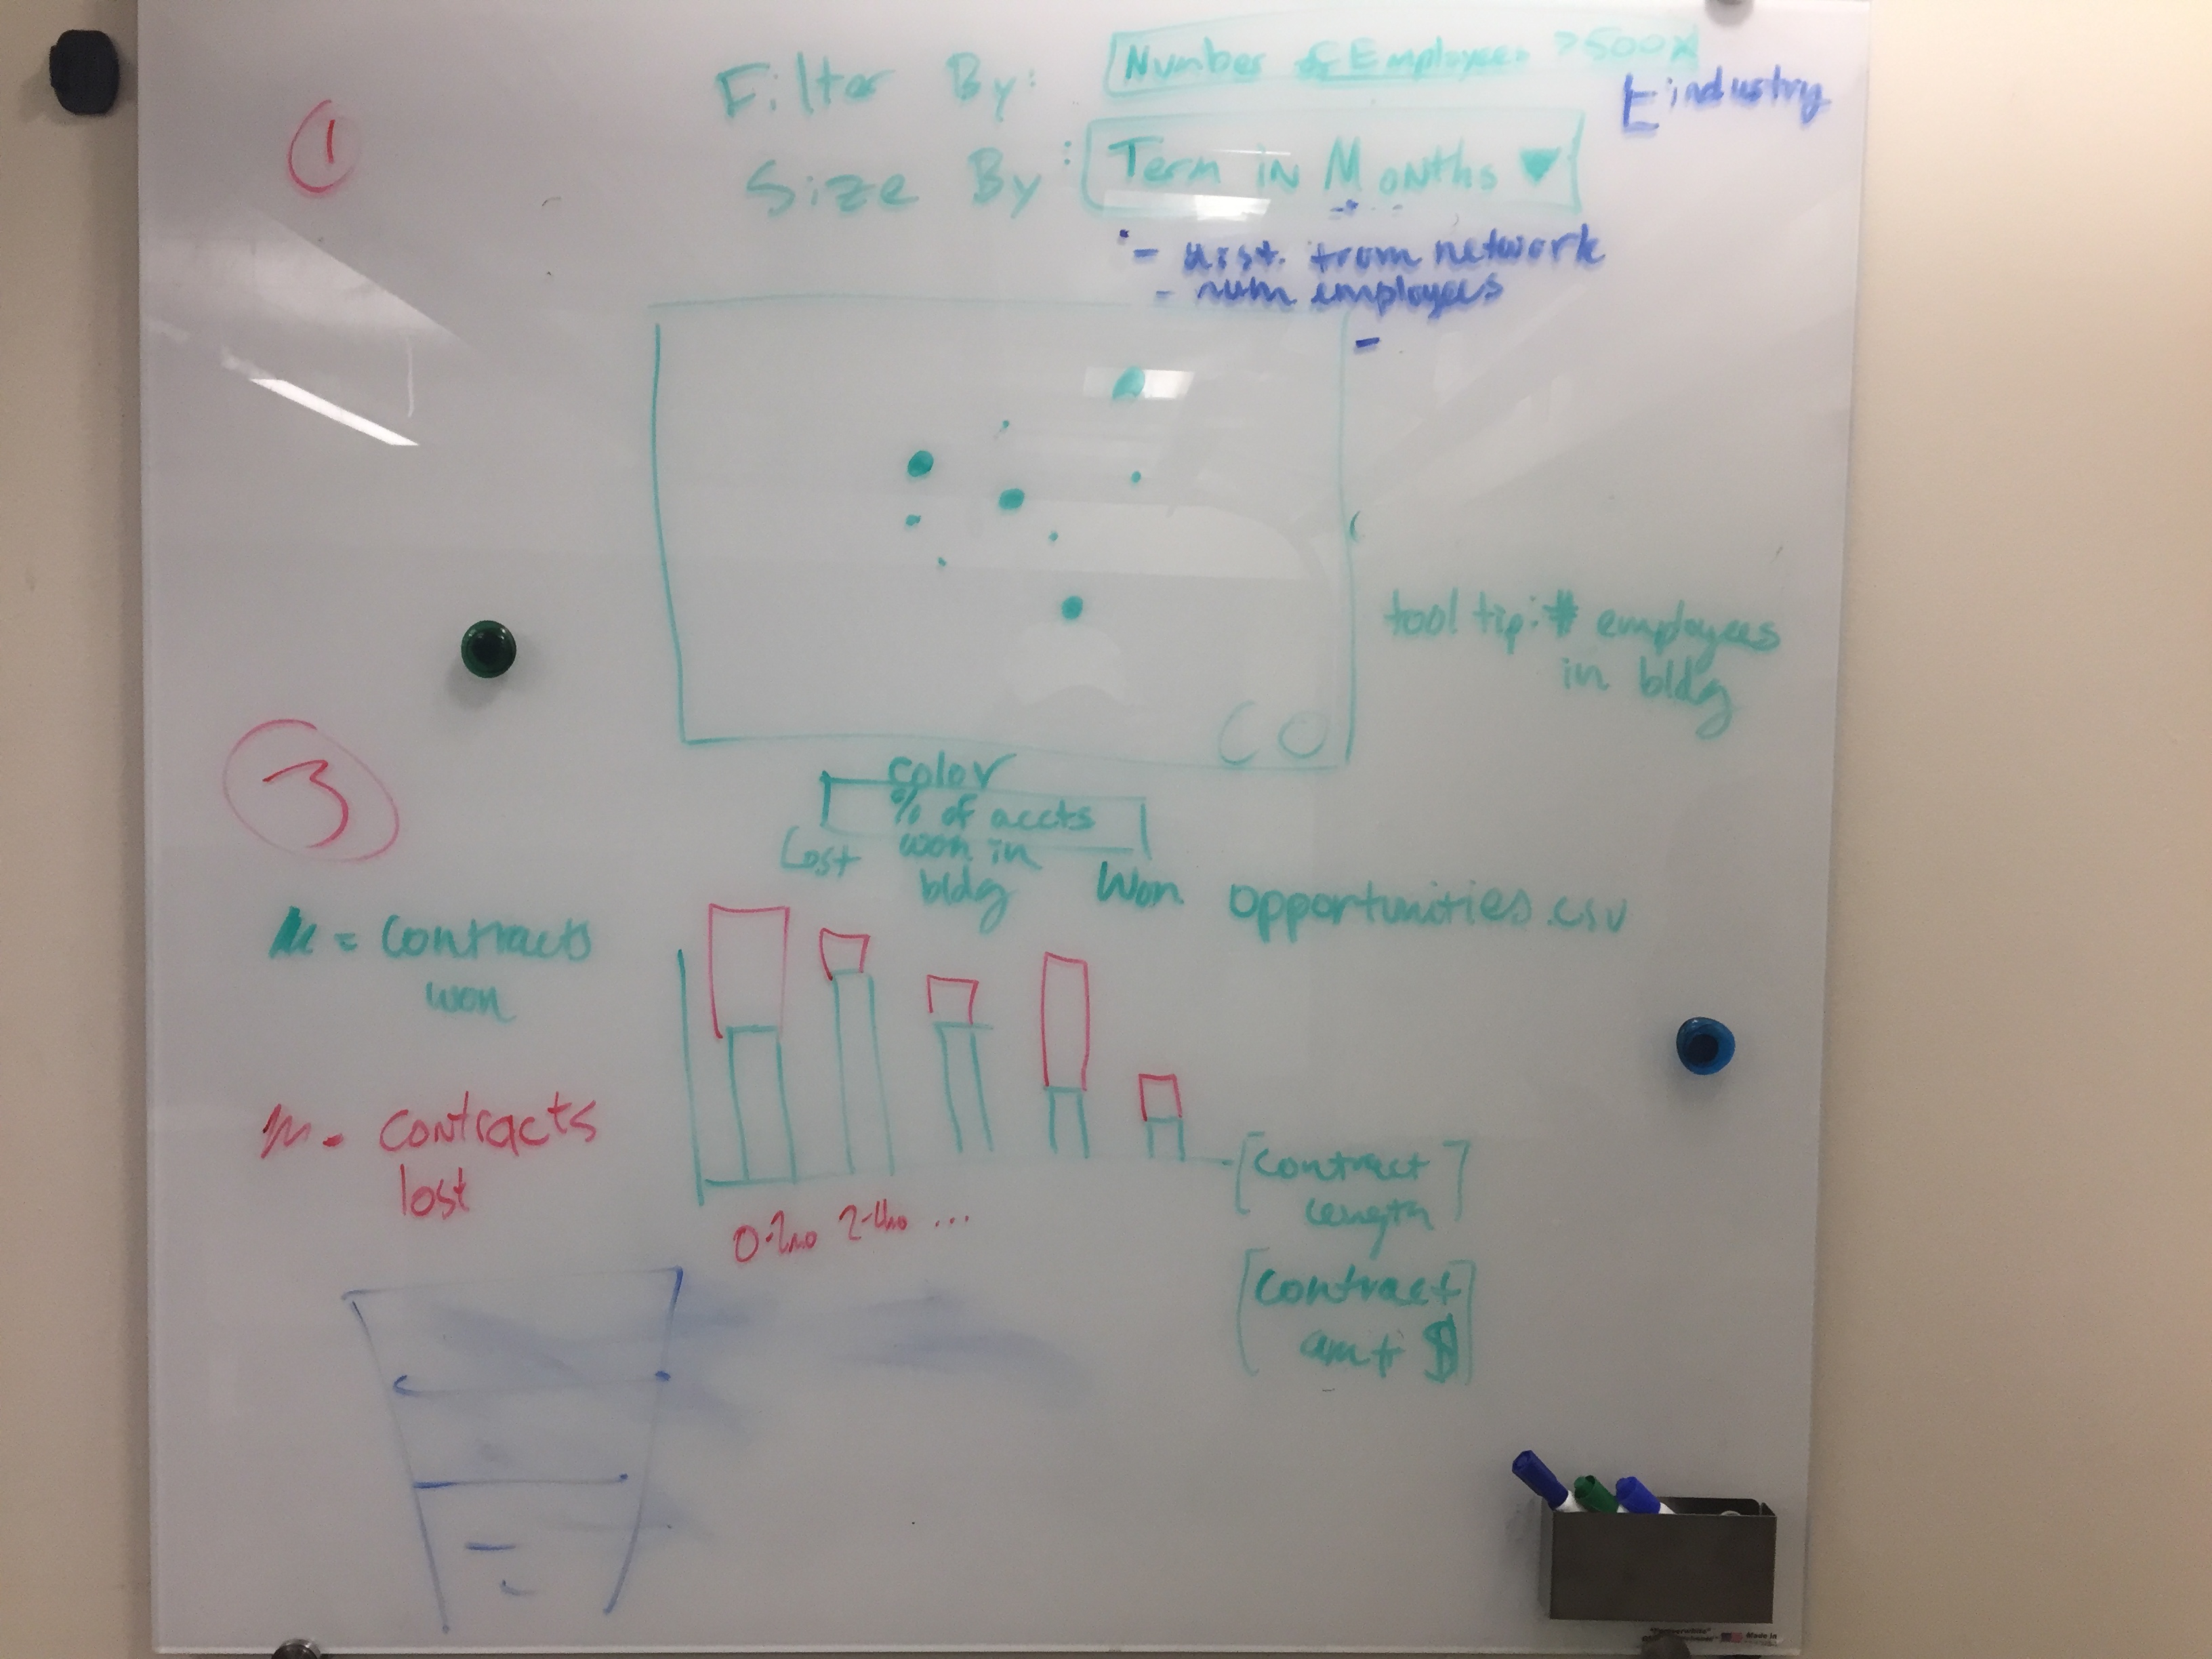 ①
Filter By: Number of Employees >500 x
industry
Size By: Term in Months ▼
- dist. from network
- num employees
-
tool tip: # employees
in bldg
CO
color
% of accts
won in
bldg
Lost
Won
opportunities.csv
③
= contracts
won
- contracts
lost
0-2mo 2-4mo ...
[contract
length]
[contract
amt $]
Made in